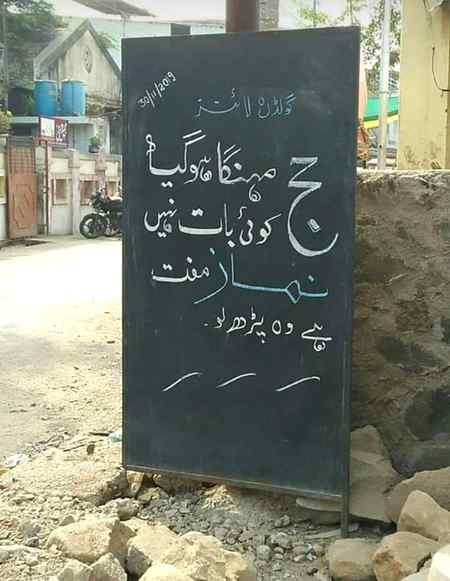 30/11/2019
گولڈن لائنز
حج مہنگا ہو گیا
کوئی بات نہیں
نماز مفت
ہے وہ پڑھ لو۔